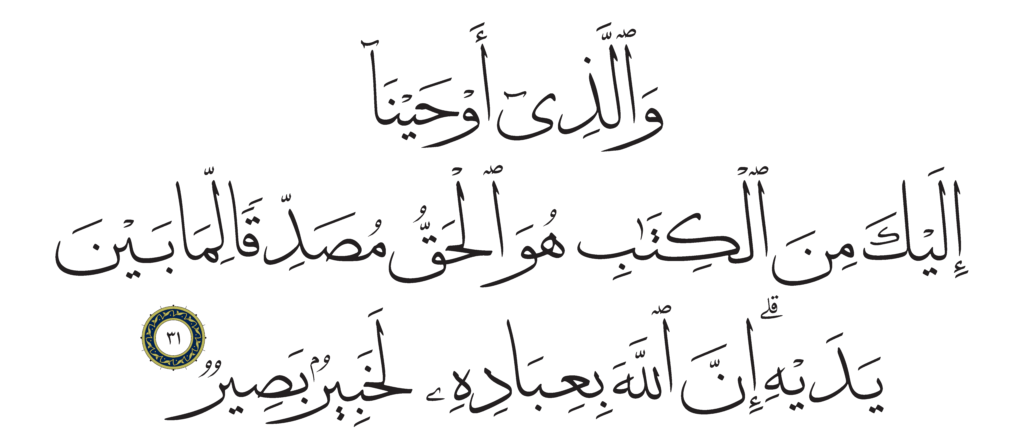 وَٱلَّذِىٓ أَوْحَيْنَآ
إِلَيْكَ مِنَ ٱلْكِتَـٰبِ هُوَ ٱلْحَقُّ مُصَدِّقًا لِّمَا بَيْنَ
يَدَيْهِ ۗ إِنَّ ٱللَّهَ بِعِبَادِهِۦ لَخَبِيرٌۢ بَصِيرٌ ٣١